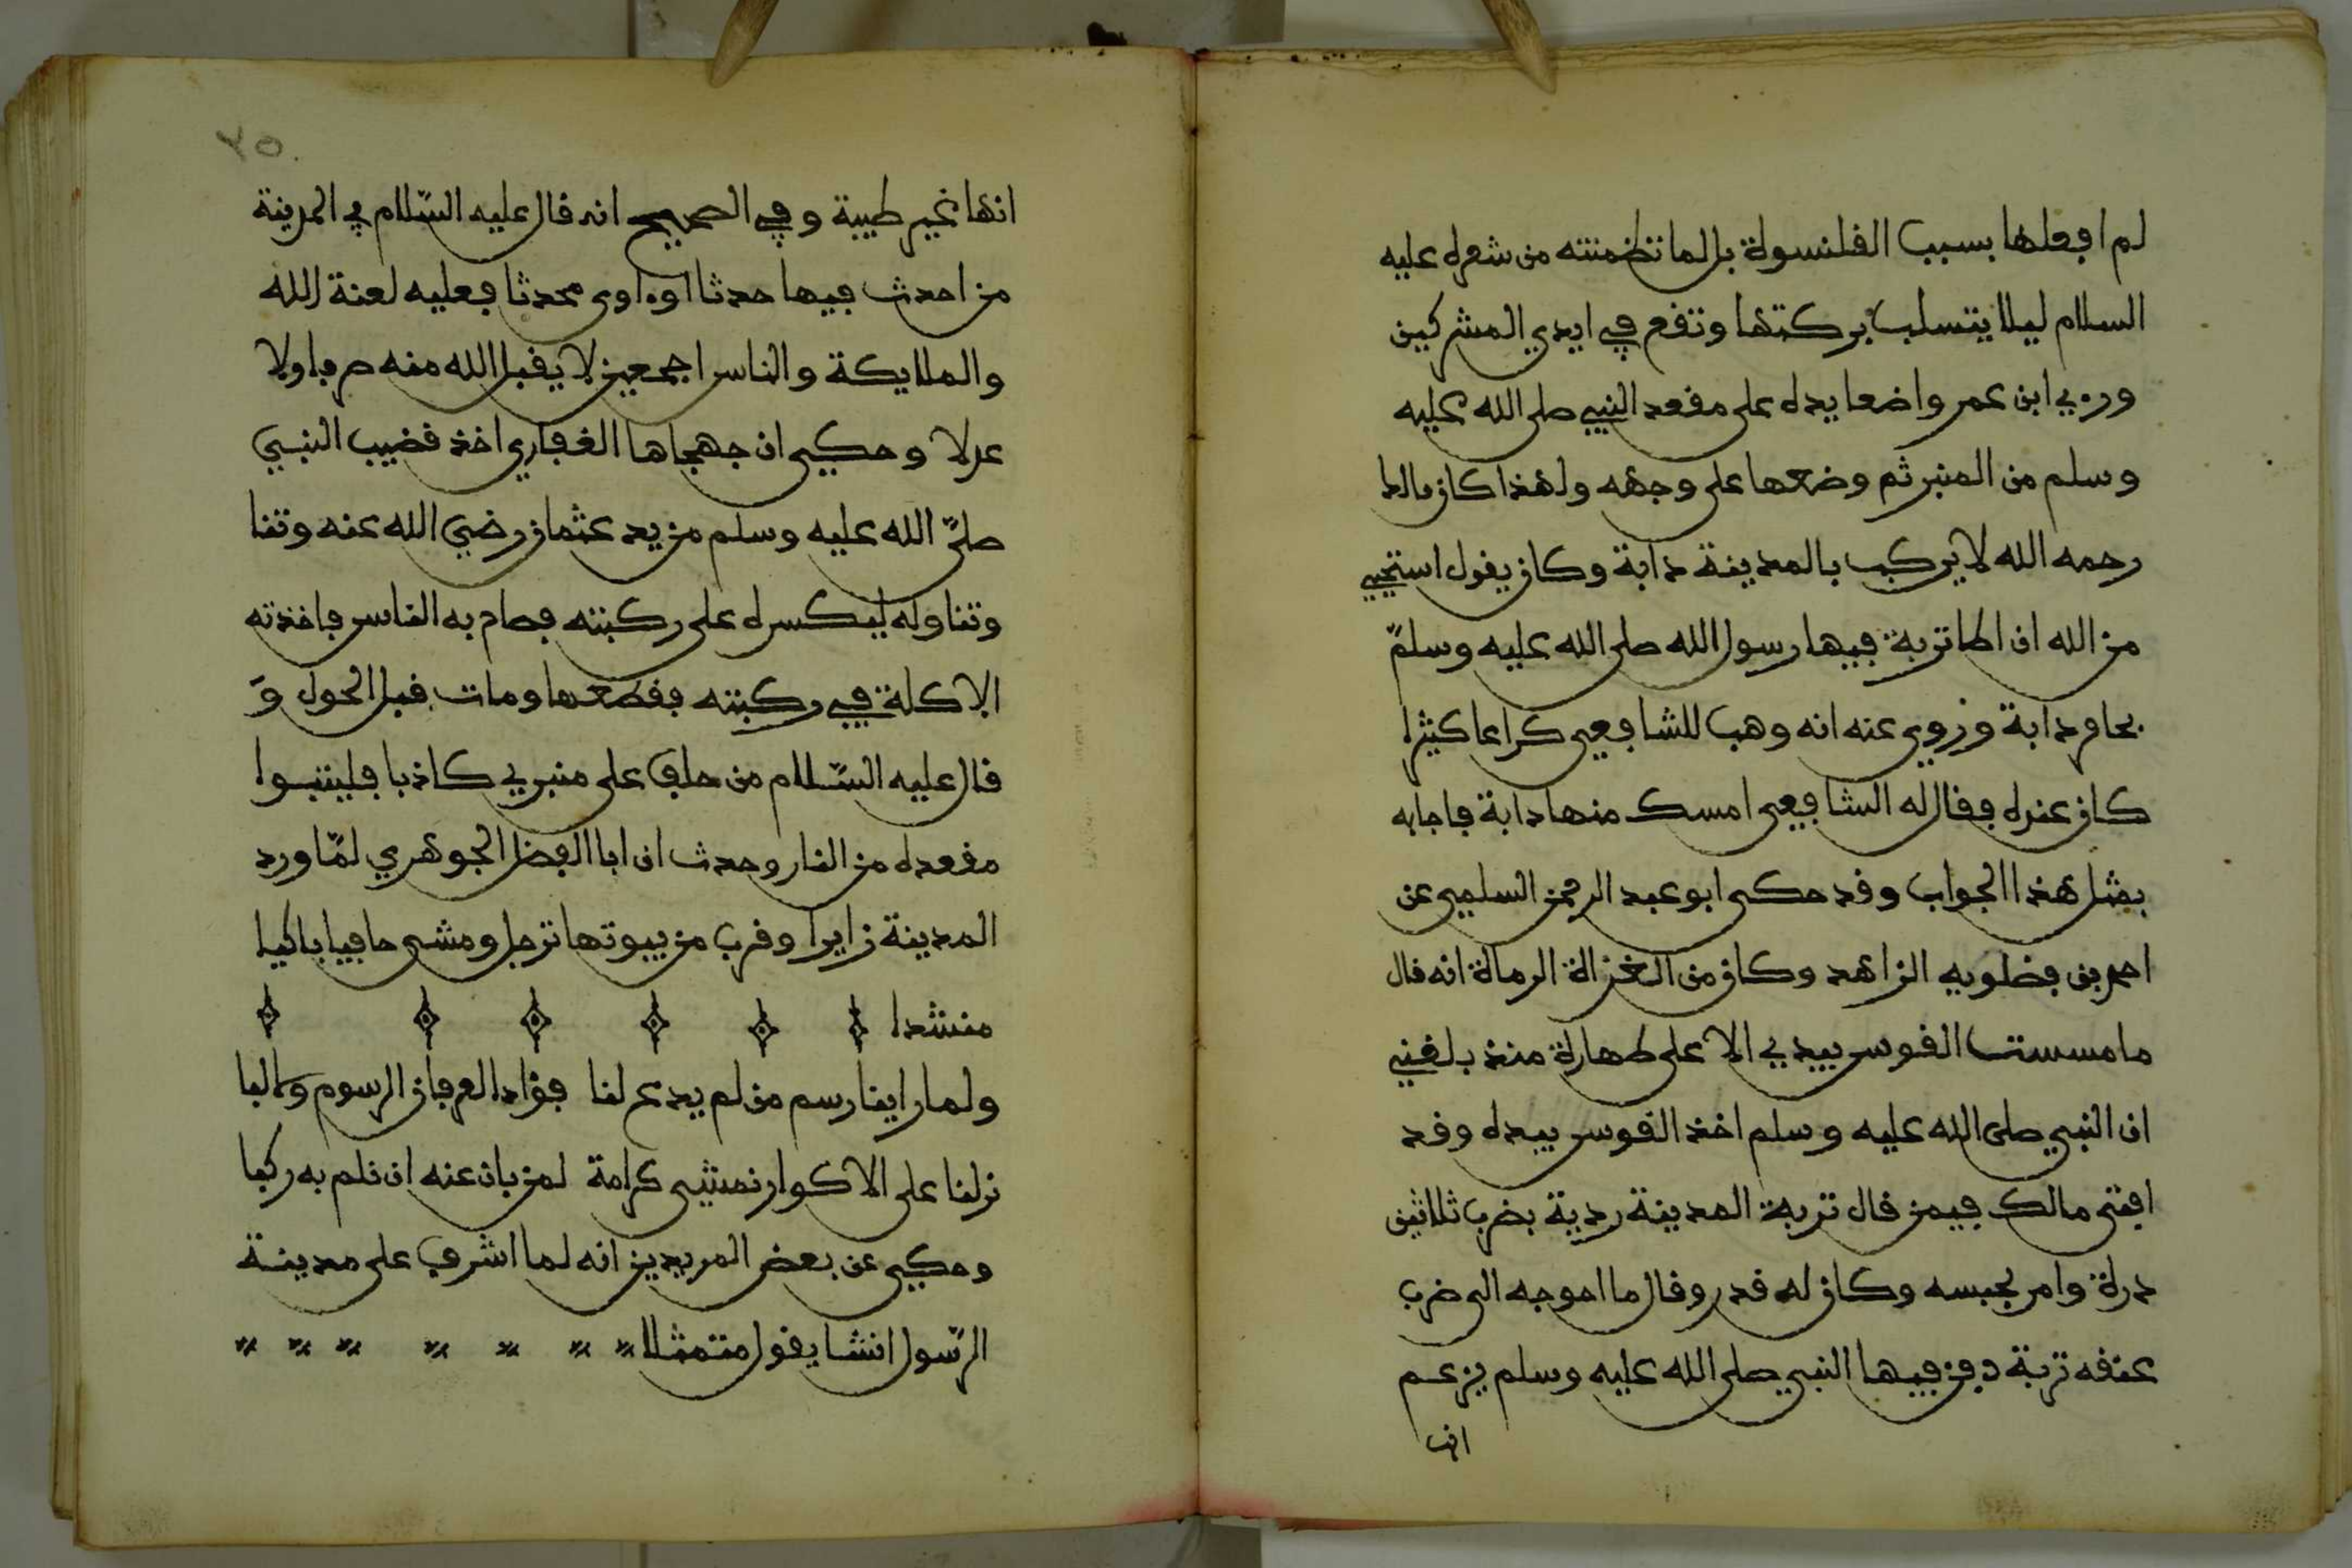 لم افعلها بسبب القلنسوة بل لما تضمنته من شعره عليه
السلام ليلا يتسلب بركتها وتقع في ايدي المشركين
وروي ابن عمر واضعا يده على مقعد النبي صلى الله عليه
وسلم من المنبر ثم وضعها على وجهه ولهذا كان مالك
رحمه الله لا يركب بالمدينة دابة وكان يقول استحيي
من الله ان اطا تربة فيها رسول الله صلى الله عليه وسلم
بحافر دابة وروي عنه انه وهب للشافعي كراعا كثيرا
كان عنده فقال له الشافعي امسك منها دابة فاجابه
بمثل هذا الجواب وقد حكى ابو عبد الرحمن السلمي عن
احمد بن فضلويه الزاهد وكان من الغزاة الرماة انه قال
ما مسست القوس بيدي الا على طهارة منذ بلغني
ان النبي صلى الله عليه وسلم اخذ القوس بيده وقد
افتى مالك فيمن قال تربة المدينة ردية بضرب ثلاثين
درة وامر بحبسه وكان له قدر وقال ما احوجه الى ضرب
عنقه تربة دفن فيها النبي صلى الله عليه وسلم يزعم
انها
٢٥
انها غير طيبة وفي الصحيح انه قال عليه السلام في المدينة
من احدث فيها حدثا او اوى محدثا فعليه لعنة الله
والملايكة والناس اجمعين لا يقبل الله منه صرفا ولا
عدلا وحكي ان جهجاها الغفاري اخذ قضيب النبي
صلى الله عليه وسلم من يد عثمان رضي الله عنه وتنا
وتناوله ليكسره على ركبته فصاح به الناس فاخذته
الاكلة في ركبته فقطعها ومات قبل الحول و
قال عليه السلام من حلف على منبري كاذبا فليتبوا
مقعده من النار وحدث ان ابا الفضل الجوهري لما ورد
المدينة زايرا وقرب من بيوتها ترجل ومشى حافيا باكيا
منشدا
ولما راينا رسم من لم يدع لنا فؤادا لعرفان الرسوم ولا لبا
نزلنا على الاكوار نمشي كرامة لمن بان عنه ان نلم به ركبا
وحكي عن بعض المريدين انه لما اشرف على مدينة
الرسول انشا يقول متمثلا